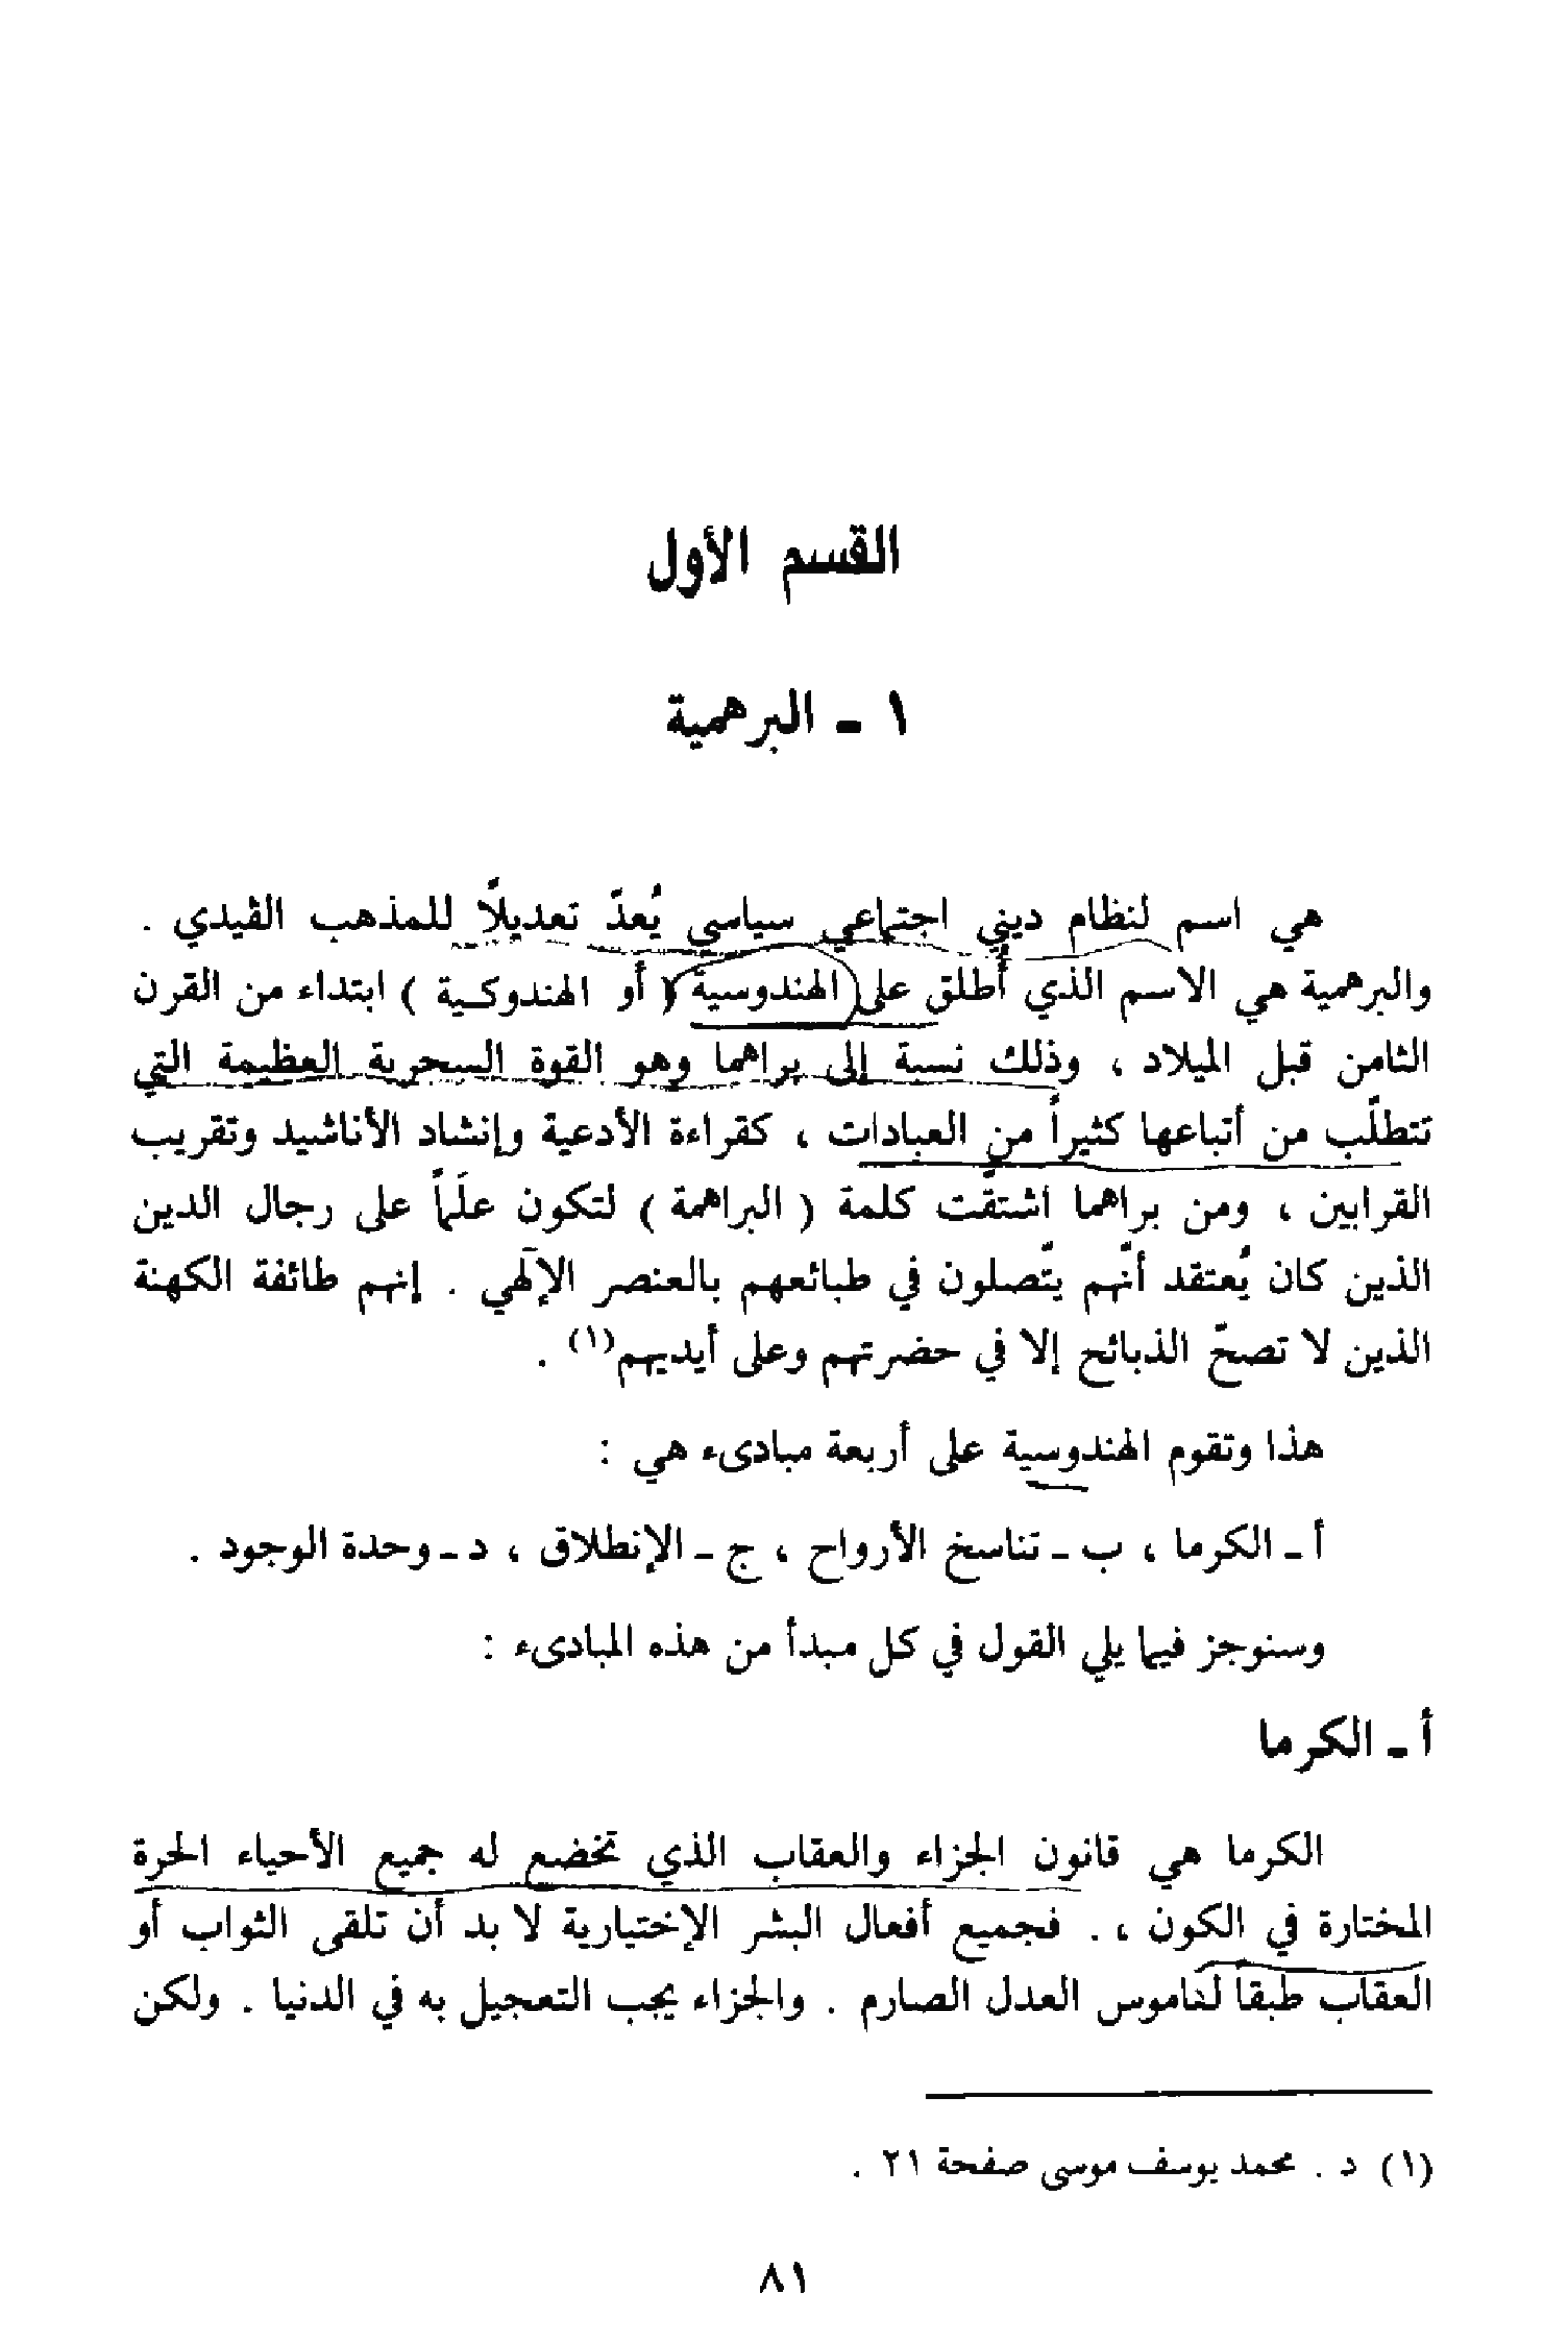 القسم الأول
١ - البرهمية
هي اسم لنظام ديني اجتماعي سياسي يُعدّ تعديلاً للمذهب الڤيدي .
والبرهمية هي الاسم الذي أُطلق على الهندوسية ( أو الهندوكية ) ابتداء من القرن
الثامن قبل الميلاد ، وذلك نسبة إلى براهما وهو القوة السحرية العظيمة التي
تتطلّب من أتباعها كثيراً من العبادات ، كقراءة الأدعية وإنشاد الأناشيد وتقريب
القرابين ، ومن براهما اشتقّت كلمة ( البراهمة ) لتكون علَماً على رجال الدين
الذين كان يُعتقد أنّهم يتّصلون في طبائعهم بالعنصر الإلٓهي . إنهم طائفة الكهنة
الذين لا تصحّ الذبائح إلا في حضرتهم وعلى أيديهم(١) .
هذا وتقوم الهندوسية على أربعة مبادىء هي :
أ - الكرما ، ب - تناسخ الأرواح ، ج - الإنطلاق ، د - وحدة الوجود .
وسنوجز فيما يلي القول في كل مبدأ من هذه المبادىء :
أ - الكرما
الكرما هي قانون الجزاء والعقاب الذي تخضع له جميع الأحياء الحرة
المختارة في الكون ، . فجميع أفعال البشر الإختيارية لا بد أن تلقى الثواب أو
العقاب طبقاً لناموس العدل الصارم . والجزاء يجب التعجيل به في الدنيا . ولكن
(١) د . محمد يوسف موسى صفحة ٢١ .
٨١